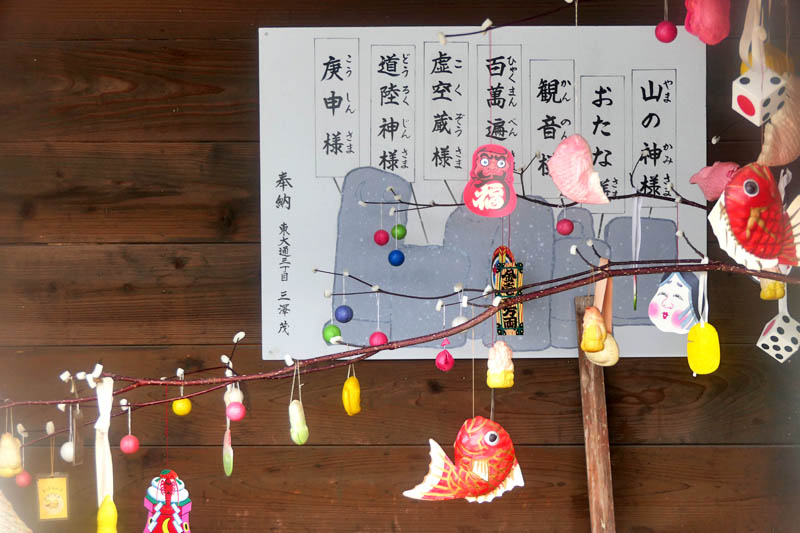 山の神様
やま かみ さま
おたな様
さま
観音様
かん のん
百萬遍
ひゃく まん べん
虚空蔵様
こ くう ぞう さま
道陸神様
どう ろく じん さま
庚申様
こう しん さま
奉納 東大通三丁目 三澤 茂
福